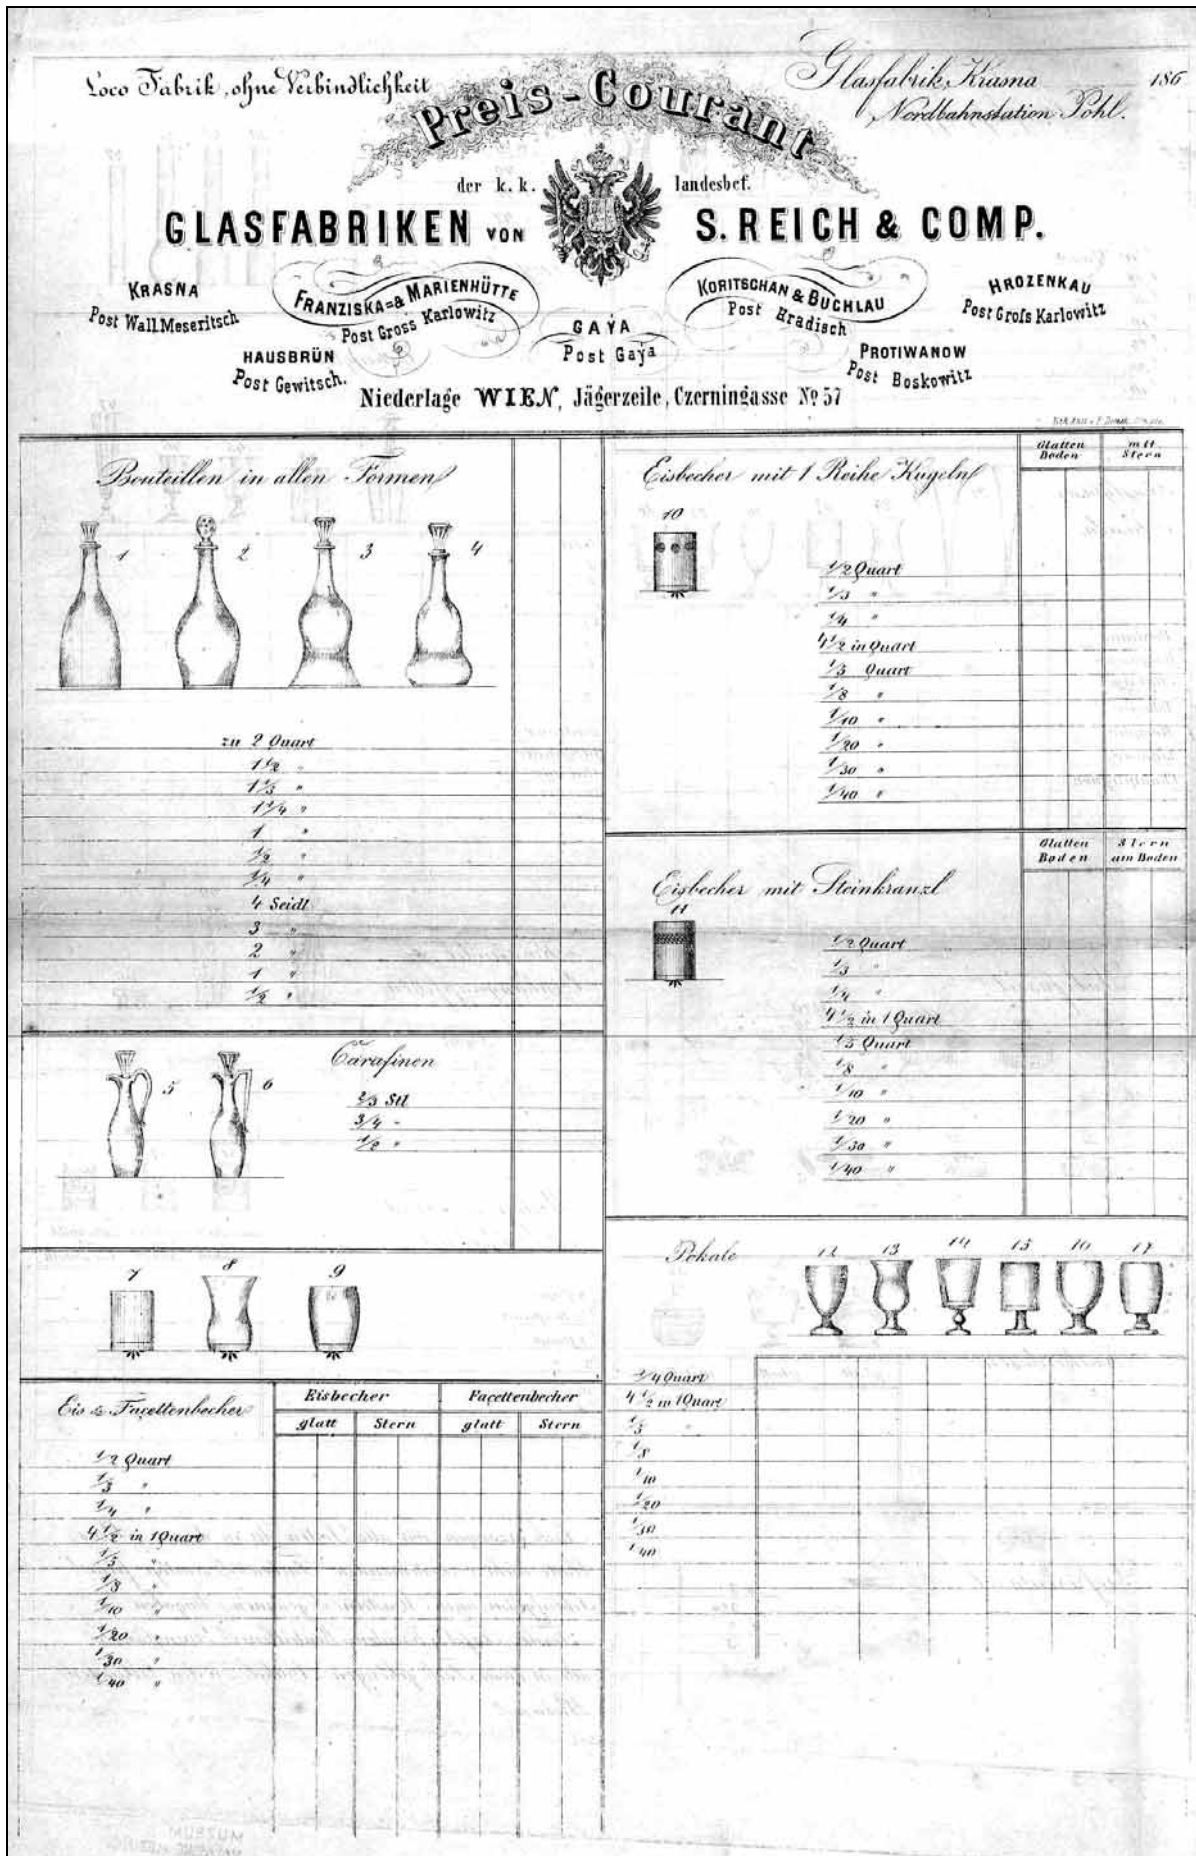 Loco Fabrik, ohne Verbindlichkeit
Glasfabrik, Krasna 186
Nordbahnstation Pohl.
Preis-Courant
der k. k. landesbef.
GLASFABRIKEN VON S. REICH & COMP.
KRASNA
Post Wall Meseritsch
FRANZISKA=& MARIENHÜTTE
Post Gross Karlowitz
KORITSCHAN & BUCHLAU
Post Hradisch
HROZENKAU
Post Groſs Karlowitz
HAUSBRÜN
Post Gewitsch.
GAYA
Post Gaya
PROTIWANOW
Post Boskowitz
Niederlage WIEN, Jägerzeile, Czerningasse No 57
Bouteillen in allen Formen
1 2 3 4
zu 2 Quart
1 1/2 "
1 1/3 "
1 1/4 "
1 "
1/2 "
1/4 "
4 Seidl
3 "
2 "
1 "
1/2 "
Carafinen
5 6
2/3 Stl
3/4 "
1/2 "
7 8 9
Eis & Facettenbecher
Eisbecher Facettenbecher
glatt Stern glatt Stern
1/2 Quart
1/3 "
1/4 "
4 1/2 in 1 Quart
1/5 "
1/8 "
1/10 "
1/20 "
1/30 "
1/40 "
Eisbecher mit 1 Reihe Kugeln
Glatten Boden
mit Stern
10
1/2 Quart
1/3 "
1/4 "
4 1/2 in Quart
1/5 Quart
1/8 "
1/10 "
1/20 "
1/30 "
1/40 "
Eisbecher mit Steinkranzl
Glatten Boden
Stern am Boden
11
1/2 Quart
1/3 "
1/4 "
4 1/2 in 1 Quart
1/5 Quart
1/8 "
1/10 "
1/20 "
1/30 "
1/40 "
Pokale
12 13 14 15 16 17
1/4 Quart
4 1/2 in 1 Quart
1/5 "
1/8
1/10
1/20
1/30
1/40